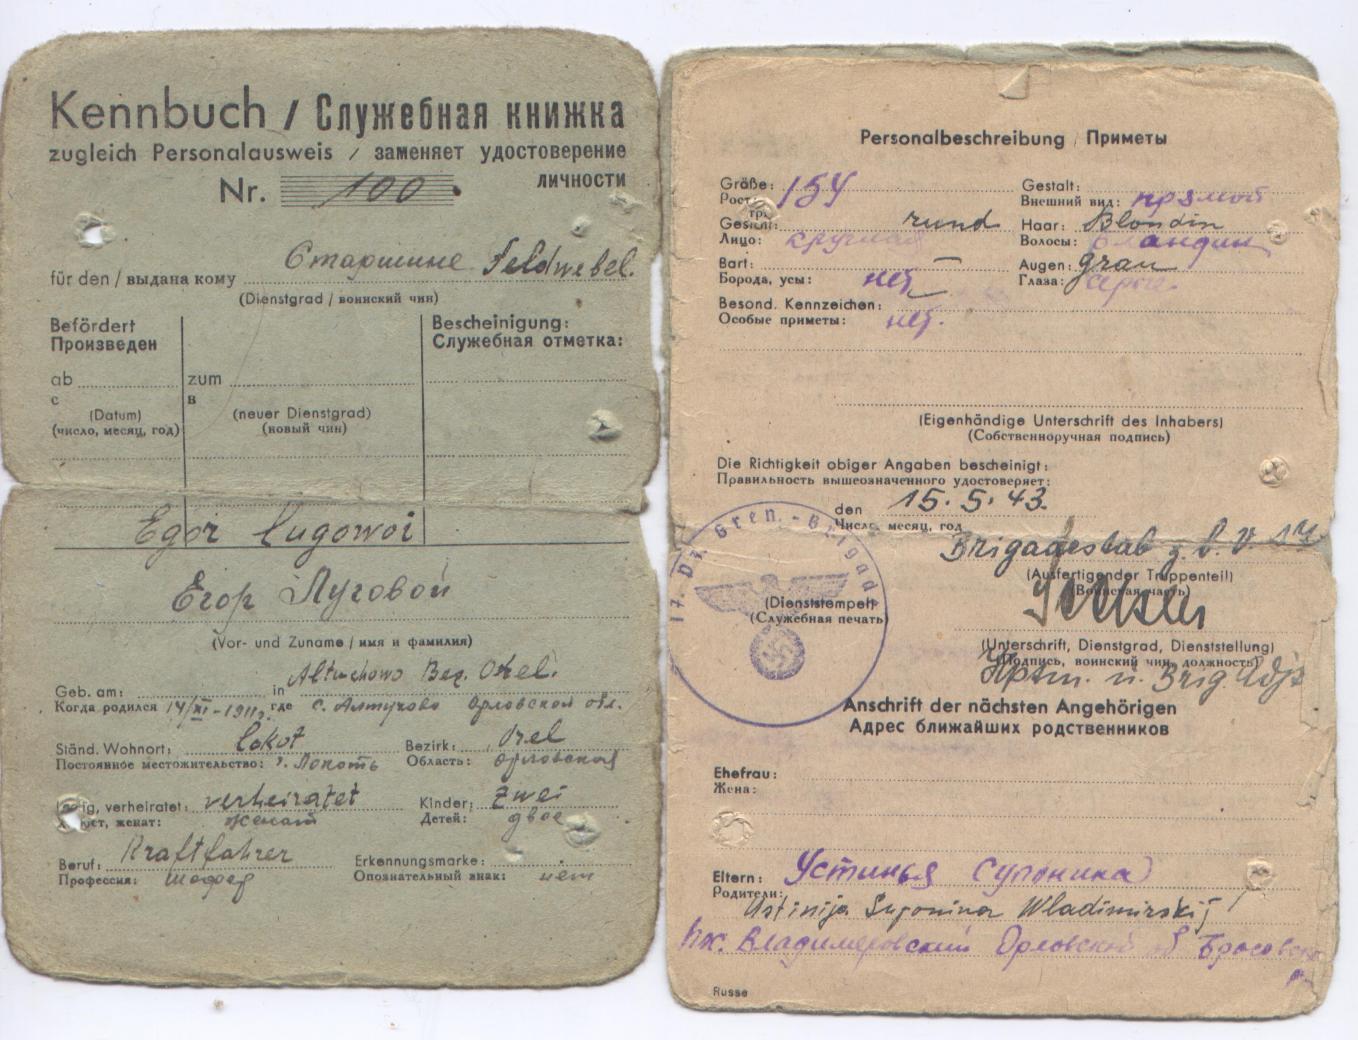 Kennbuch / Служебная книжка
zugleich Personalausweis / заменяет удостоверение
личности
Nr. 100.
Старшине Feldwebel.
für den / выдана кому
(Dienstgrad / воинский чин)
Befördert Bescheinigung:
Произведен Служебная отметка:
ab zum
с в
(Datum) (neuer Dienstgrad)
(число, месяц, год) (новый чин)
Egor Lugowoi
Егор Луговой
(Vor- und Zuname / имя и фамилия)
Geb. am: in Altuchowo Bez. Orel.
Когда родился 14/XI-1911г. где с. Алтухово Орловской обл.
Ständ. Wohnort: Lokot Bezirk: Orel
Постоянное местожительство: Локоть Область: Орловская
verheiratet: verheiratet Kinder: zwei
женат: женат Детей: двое
Beruf: Kraftfahrer Erkennungsmarke:
Профессия: шофер Опознательный знак: нет
Personalbeschreibung / Приметы
Größe: 154 Gestalt:
Рост: Внешний вид: прямой
Gesicht: rund Haar: Blondin
Лицо: круглая Волосы: Бландин
Bart: — Augen: grau
Борода, усы: нет Глаза: серые.
Besond. Kennzeichen:
Особые приметы: нет.
(Eigenhändige Unterschrift des Inhabers)
(Собственноручная подпись)
Die Richtigkeit obiger Angaben bescheinigt:
Правильность вышеозначенного удостоверяет:
den 15.5.43.
Число, месяц, год
17. Pz. Gren.-Brigade
Brigadestab z.b.V. 17
(Ausfertigender Truppenteil)
(Воинская часть)
(Dienststempel)
(Служебная печать)
(Unterschrift, Dienstgrad, Dienststellung)
(Подпись, воинский чин, должность)
Hptm. u. Brig. Adj.
Anschrift der nächsten Angehörigen
Адрес ближайших родственников
Ehefrau:
Жена:
Eltern: Устинья Супонина
Родители:
Ustinija Suponina Wladimirskij
Владимеровский Орловской об Брасовско
Russe